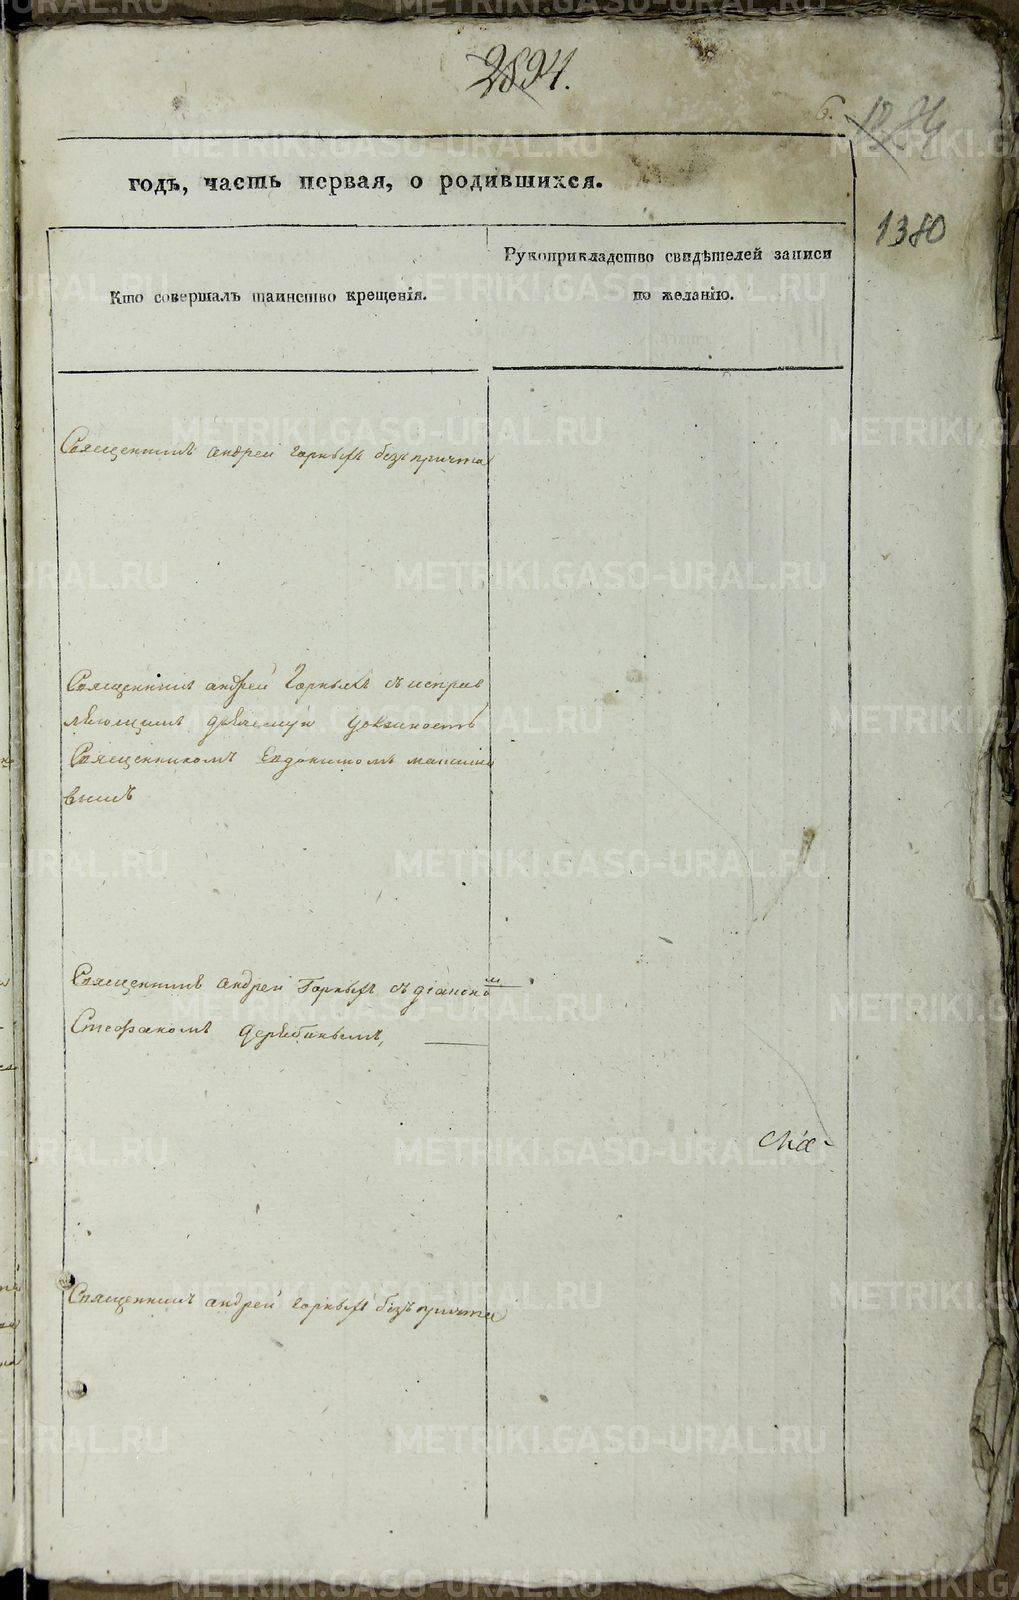 2894.
6.
1380
годъ, часть первая, о родившихся.
Кто совершалъ таинство крещенія.
Рукоприкладство свидѣтелей записи
по желанію.
Священникъ андрей горныхъ безъ причта
Священникъ андрей Горныхъ съ исправ
ляющимъ дьяческую должность
Священникомъ Евдокимомъ
вымъ
Священникъ андрей Горныхъ съ діакономъ
Стефаномъ дерябинымъ,
Священникъ андрей горныхъ безъ причта
METRIKI.GASO-URAL.RU